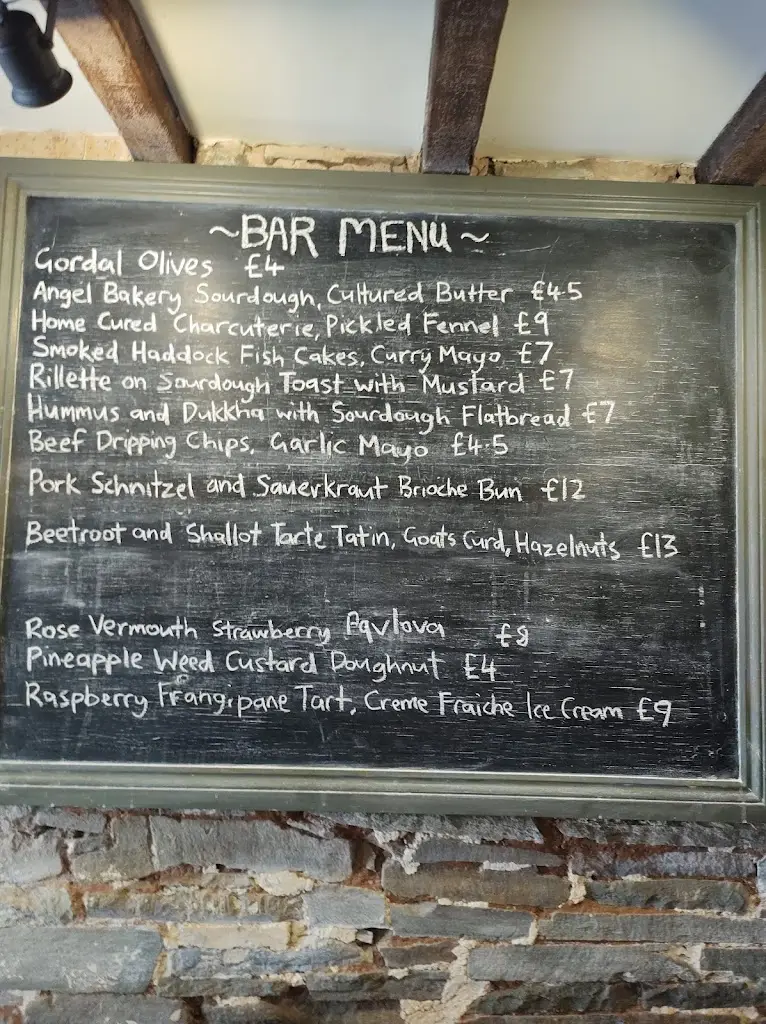 ~BAR MENU~
Gordal Olives £4
Angel Bakery Sourdough, Cultured Butter £4.5
Home Cured Charcuterie, Pickled Fennel £9
Smoked Haddock Fish Cakes, Curry Mayo £7
Rillette on Sourdough Toast with Mustard £7
Hummus and Dukkha with Sourdough Flatbread £7
Beef Dripping Chips, Garlic Mayo £4.5
Pork Schnitzel and Sauerkraut Brioche Bun £12
Beetroot and Shallot Tarte Tatin, Goats Curd, Hazelnuts £13
Rose Vermouth Strawberry Pavlova £8
Pineapple Weed Custard Doughnut £4
Raspberry Frangipane Tart, Creme Fraiche Ice Cream £9